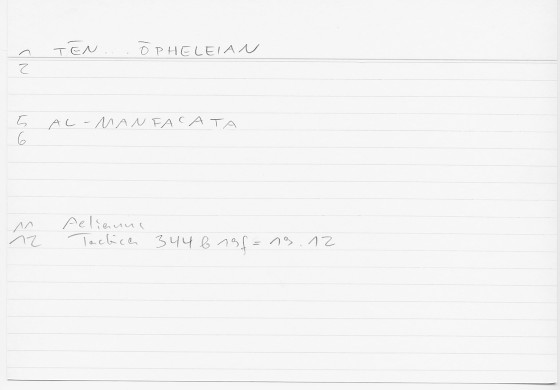 1 TĒN... ŌPHELEIAN
2
5 AL-MANFAʿATA
6
11 Aelianus
12 Tactica 344 b 19f = 19.12